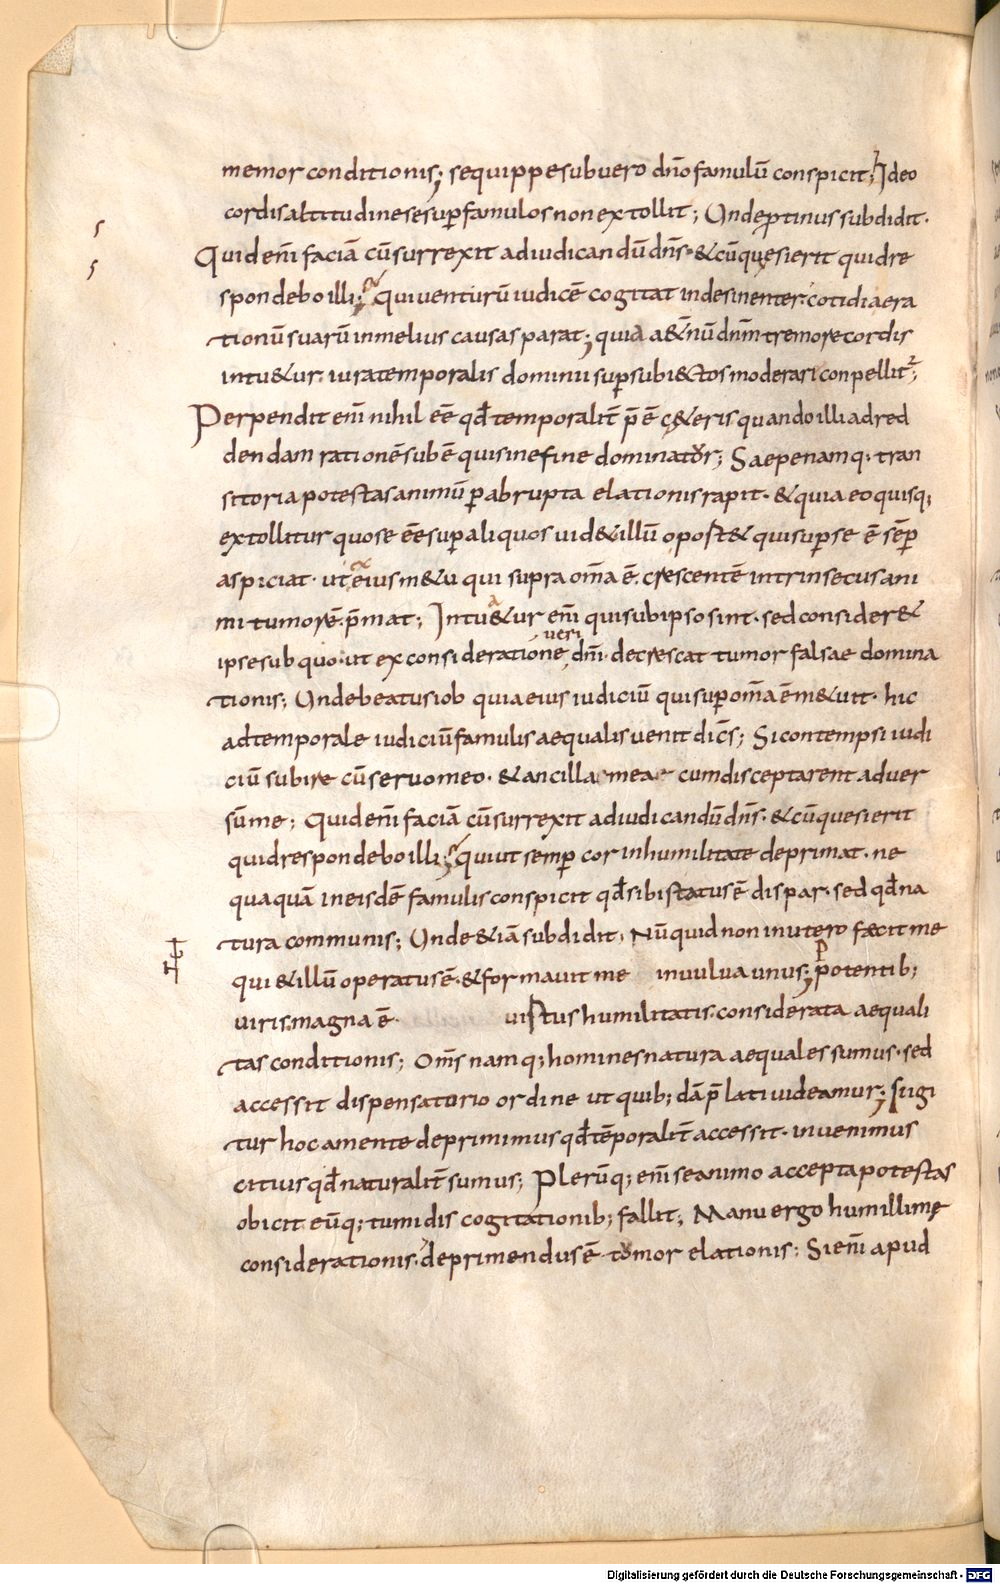 memor conditionis; se quippe sub uero dño famulū conspicit; Ideo
cordis altitudine se suꝑ famulos non extollit; Unde ꝓtinus subdidit.
Quid eni̅ facia̅ cū surrexit ad iudicandū dn̅s. & cū quęsierit quid re
spondebo illi; Qui uenturū iudicē cogitat indesinenter. cotidia era
tionū suarū in melius causas parat; quia a&̅nū dn̅m tremore cordis
intu&ur. iura temporalis dominii suꝑ subi&ctos moderari conpellit̅;
Perpendit eni̅ nihil ēē qd̅ temporalit̅ p̅ ē c&eris quando illi ad red
dendam rationē sub ē qui sine fine dominator; Saepe namq; tran
sitoria potestas animū ꝑ abrupta elationis rapit. & quia eo quisq;
extollitur quo se ēē suꝑ aliquos uid& illū opost& qui suꝑ se ē sēꝑ
aspiciat. ut eius m&u qui supra om̅a ē. crescentē intrinsecus ani
mi tumorē. p̅mat; Intu&ur eni̅ qui sub ipso sint. sed consider&
uesi
ipse sub quo. ut ex consideratione dn̅i. decrescat tumor falsae domina
tionis; Unde beatus iob quia eius iudiciū qui suꝑ om̅a ē m&uit. hic
ad temporale iudiciū famulis aequalis uenit dic̅s; Si contempsi iudi
ciū subire cū seruo meo. & ancilla mea cum disceptarent aduer
sū me; Quid eni̅ facia̅ cū surrexit ad iudicandū dn̅s. & cū quesierit
quid respondebo illi; qui ut semꝑ cor in humilitate deprimat. ne
quaquā in eisdē famulis conspicit qd̅ sibi status ē dispar. sed qd̅ na
tura communis; Unde & iā subdidit. Nūquid non in utero fæcit me
qui & illū operatus ē. & formauit me in uulua unus; p̅ potentib;
uiris. magna ē. uirtus humilitatis. considerata aequali
tas conditionis; Om̅s namq; homines natura aequales sumus. sed
accessit dispensaturio ordine ut quib; dā p̅lati uideamur; Si igi
tur hoc a mente deprimimus qd̅ tēporalit̅ accessit. inuenimus
citius qd̅ naturalit̅ sumus; Plerūq; eni̅ se animo accepta potestas
obicit eūq; tumidis cogitationib; fallit; Manu ergo humillimę
considerationis. deprimendus ē. tumor elationis; Si eni̅ apud
Digitalisierung gefördert durch die Deutsche Forschungsgemeinschaft - DFG